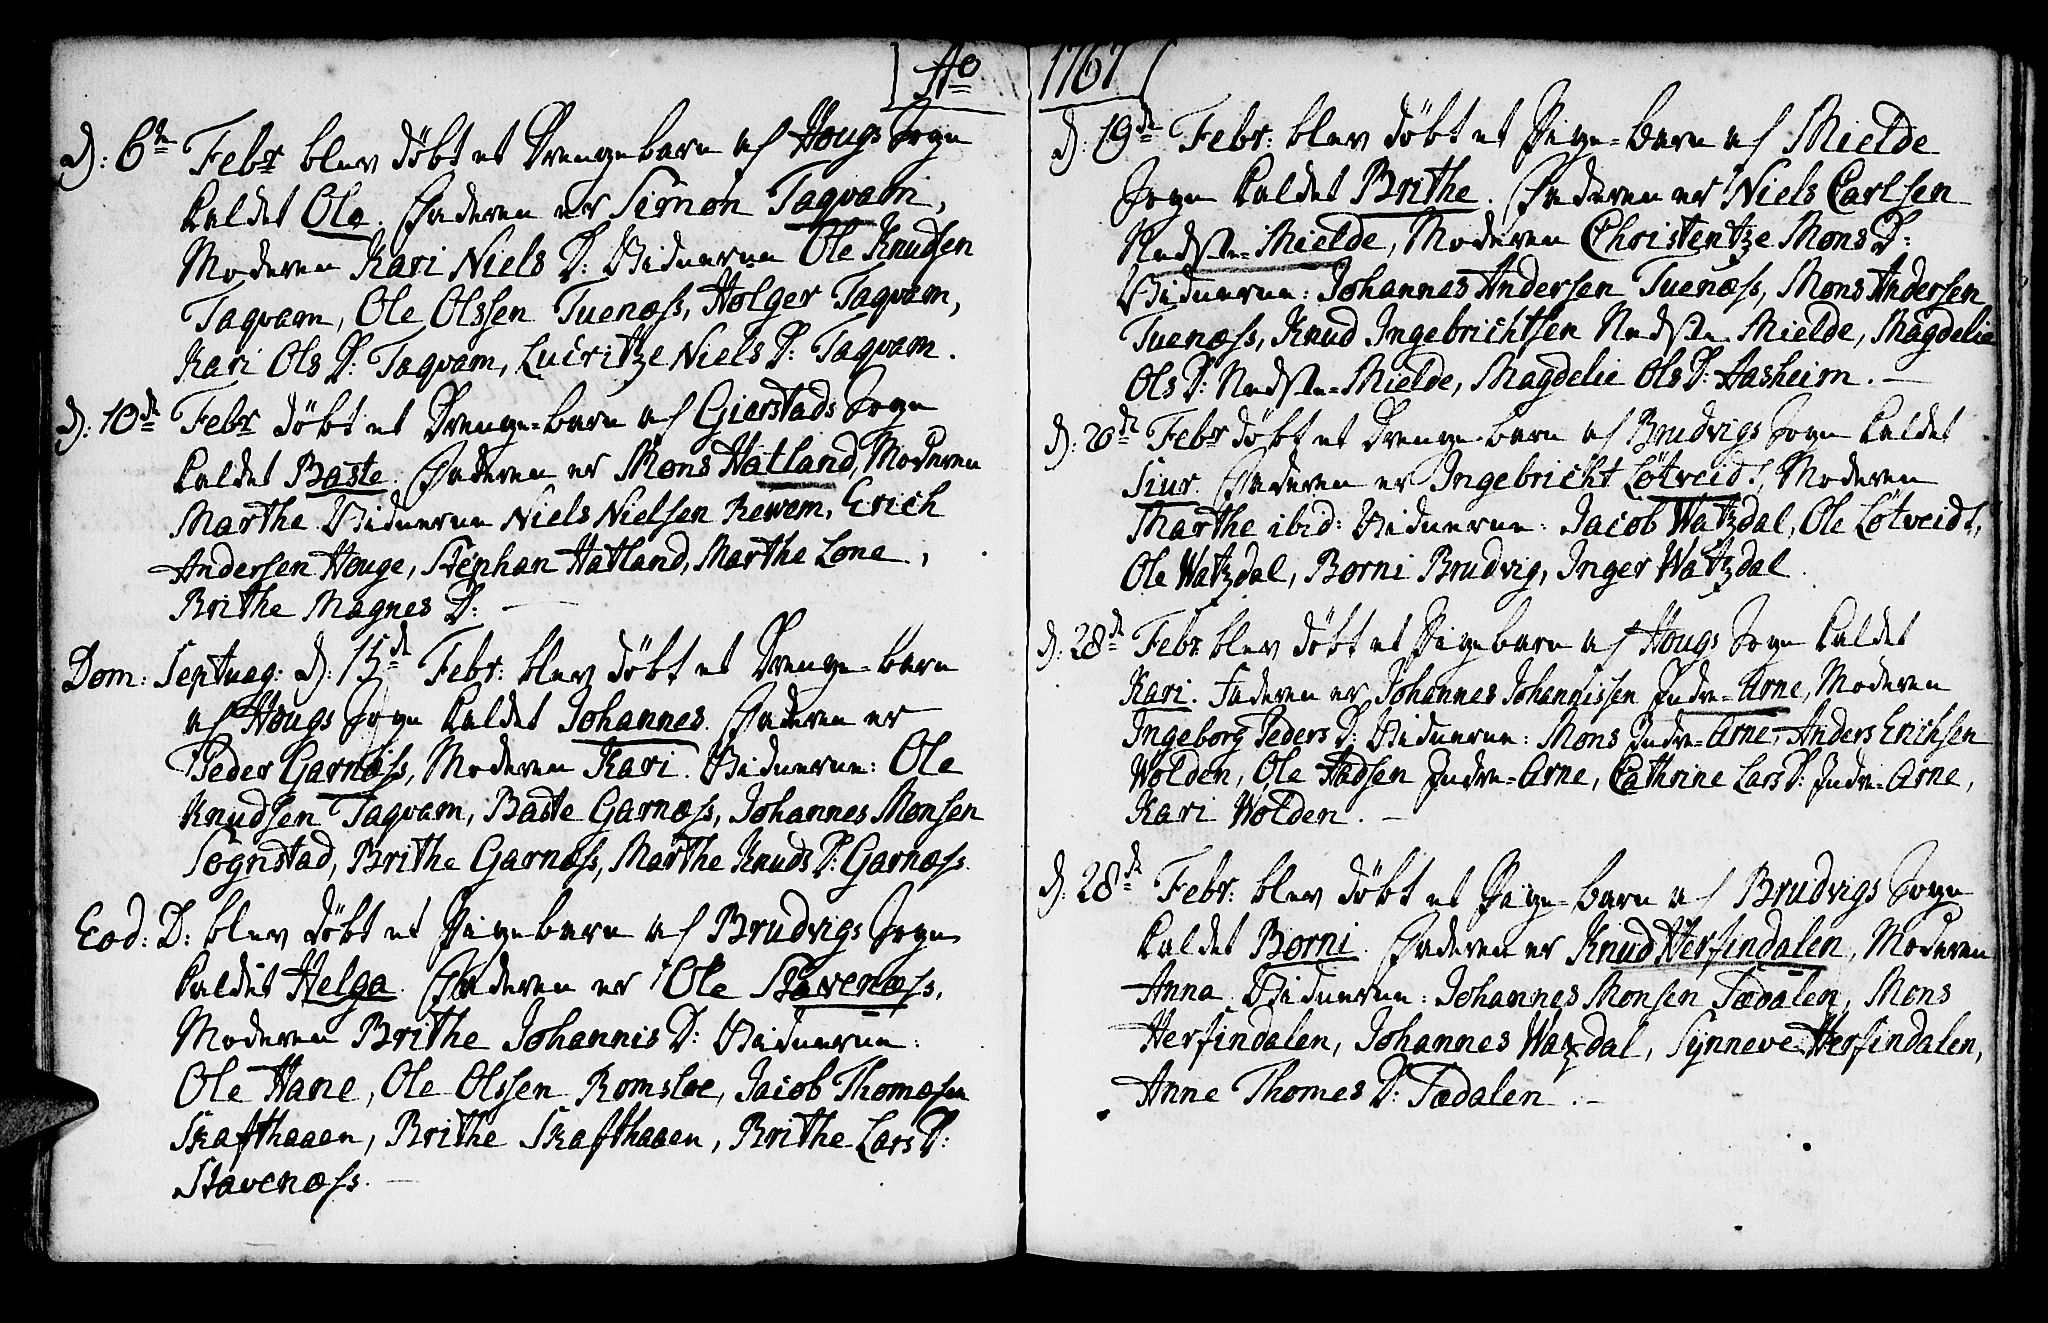 Ao
D: 6te Febr blev döbt et Drengebarn af Hougs Sogn
kaldet Ole. Faderen er Simon Taqvam,
Moderen Kari Niels D: Vidnerne Ole Knudsen
Taqvam, Ole Olssen Tuenæss, Holger Taqvam,
Kari Ols D: Taqvam, Lucritze Niels D: Taqvam.
D: 10de Febr döbt et Drenge-barn af Gierstads Sogn
kaldet Baste. Faderen er Mons Hatland, Moderen
Marthe Vidnerne Niels Nielsen Rewem, Erich
Andersen Houge, Stephan Hatland, Marthe Lone,
Brithe Magnes D: —
Dom: Septuag: D: 15de Febr: blev döbt et Drenge-barn
af Hougs Sogn kaldet Johannes. Faderen er
Peder Garnæss, Moderen Kari. Vidnerne: Ole
Knudsen Taqvam, Baste Garnæss, Johannes Monsen
Sognstad, Brithe Garnæss, Marthe Knuds D: Garnæss.
Eod: D: blev döbt et Pigebarn af Brudvigs Sogn
kaldet Helga. Faderen er Ole Stavenæss,
Moderen Brithe Johannis D: Vidnerne:
Ole Hane, Ole Olssen Romsloe, Jacob Thomæsen
Skafthaaen, Brithe Skafthaaen, Brithe Lars D:
Stavenæss. —
1767
D: 19de Febr: blev döbt et Pige-barn af Mielde
Sogn kaldet Brithe. Faderen er Niels Carlsen
Nedste-Mielde, Moderen Christentze Mons D:
Vidnerne: Johannes Andersen Tuenæss, Mons Andersen
Tuenæss, Knud Ingebrichtsen Nedste-Mielde, Magdelie
Ols D: Nedste-Mielde, Magdelie Ols D: Aasheim. —
D: 20de Febr döbt et Drenge-barn af Brudvigs Sogn kaldet
Siur. Faderen er Ingebricht Lötveidt, Moderen
Marthe ibid: Vidnerne: Jacob Watzdal, Ole Lötveidt,
Ole Watzdal, Børni Brudvig, Inger Watzdal.
D: 28de Febr blev döbt et Pigebarn af Hougs Sogn kaldet
Kari. Faderen er Johannes Johannissen Indre-Arne, Moderen
Ingeborg Peders D: Vidnerne: Mons Indre-Arne, Anders Erichsen
Wolden, Ole Fadsen Indre-Arne, Cathrine Lars D: Indre-Arne,
Kari Wolden. —
D: 28de Febr: blev döbt et Pige-barn af Brudvigs Sogn
kaldet Børni. Faderen er Knud Herfindalen, Moderen
Anna. Vidnerne: Johannes Monsen Fædalen, Mons
Herfindalen, Johannes Watzdal, Synneve Herfindalen,
Anne Thomes D: Fædalen. —